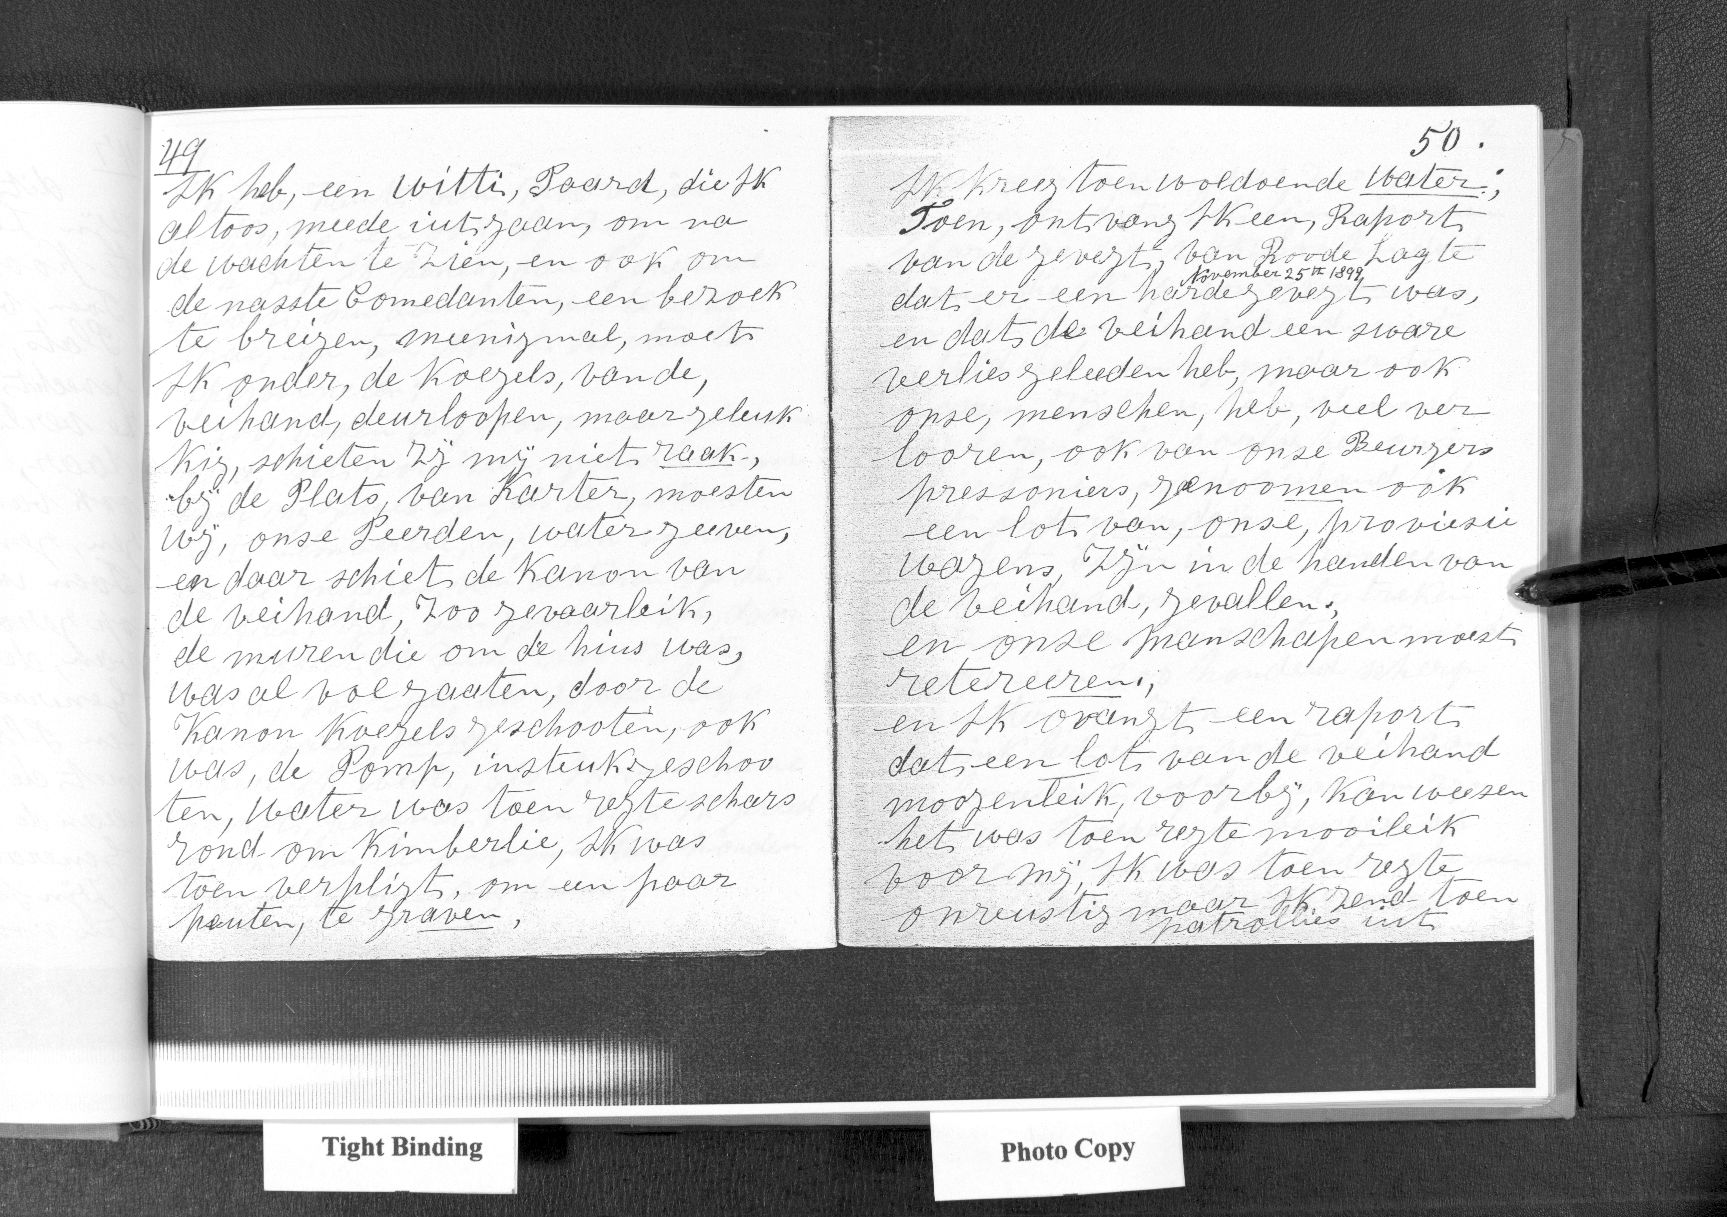 49
Ik heb, een witti, Paard, die Ik
altoos, meede iutgaan, om na
de wachten te Zien, en ook om
de nasste Comedanten, een bezoek
te breigen, meenigmal, moet
Ik onder, de Koegels, van de,
veihand, deurloopen, maar geleuk
kig, schieten Zÿ mÿ niet raak,
bÿ de Plats, van Karter, moesten
wÿ, onse Peerden, water geeven,
en daar schiet de Kanon van
de veihand, Zoo gevaarleik,
de muren die om de hius was,
was al vol gaaten, door de
Kanon Koegels geschooten, ook
was, de Pomp, insteuk geschoo
ten, water was toen regte schars
rond om Kimberlie, Ik was
toen verpligt, om een paar
peuten, te graven,
50.
Ik Kreeg toen woldoende water;
Toen, ontvang Ik een, Raport
van de gevegt, van Roode Lagte
November 25th 1899
dat er een harde gevegt was,
en dat de veihand een sware
verlies geleeden heb, maar ook
onse, menschen, heb, veel ver
looren, ook van onse Beurgers
pressoniers, genoomen ook
een lot van, onse, proviesie
wagens, Zÿn in de handen van
de veihand, gevallen,
en onse manschapen moest
retereeren,
en Ik ovangt een raport
dat een lot van de veihand
moogenleik, voorbÿ, Kan weesen
het was toen regte mooileik
voor mÿ, Ik was toen regte
onreustig maar Ik zend toen
patrollies iut
Tight Binding
Photo Copy